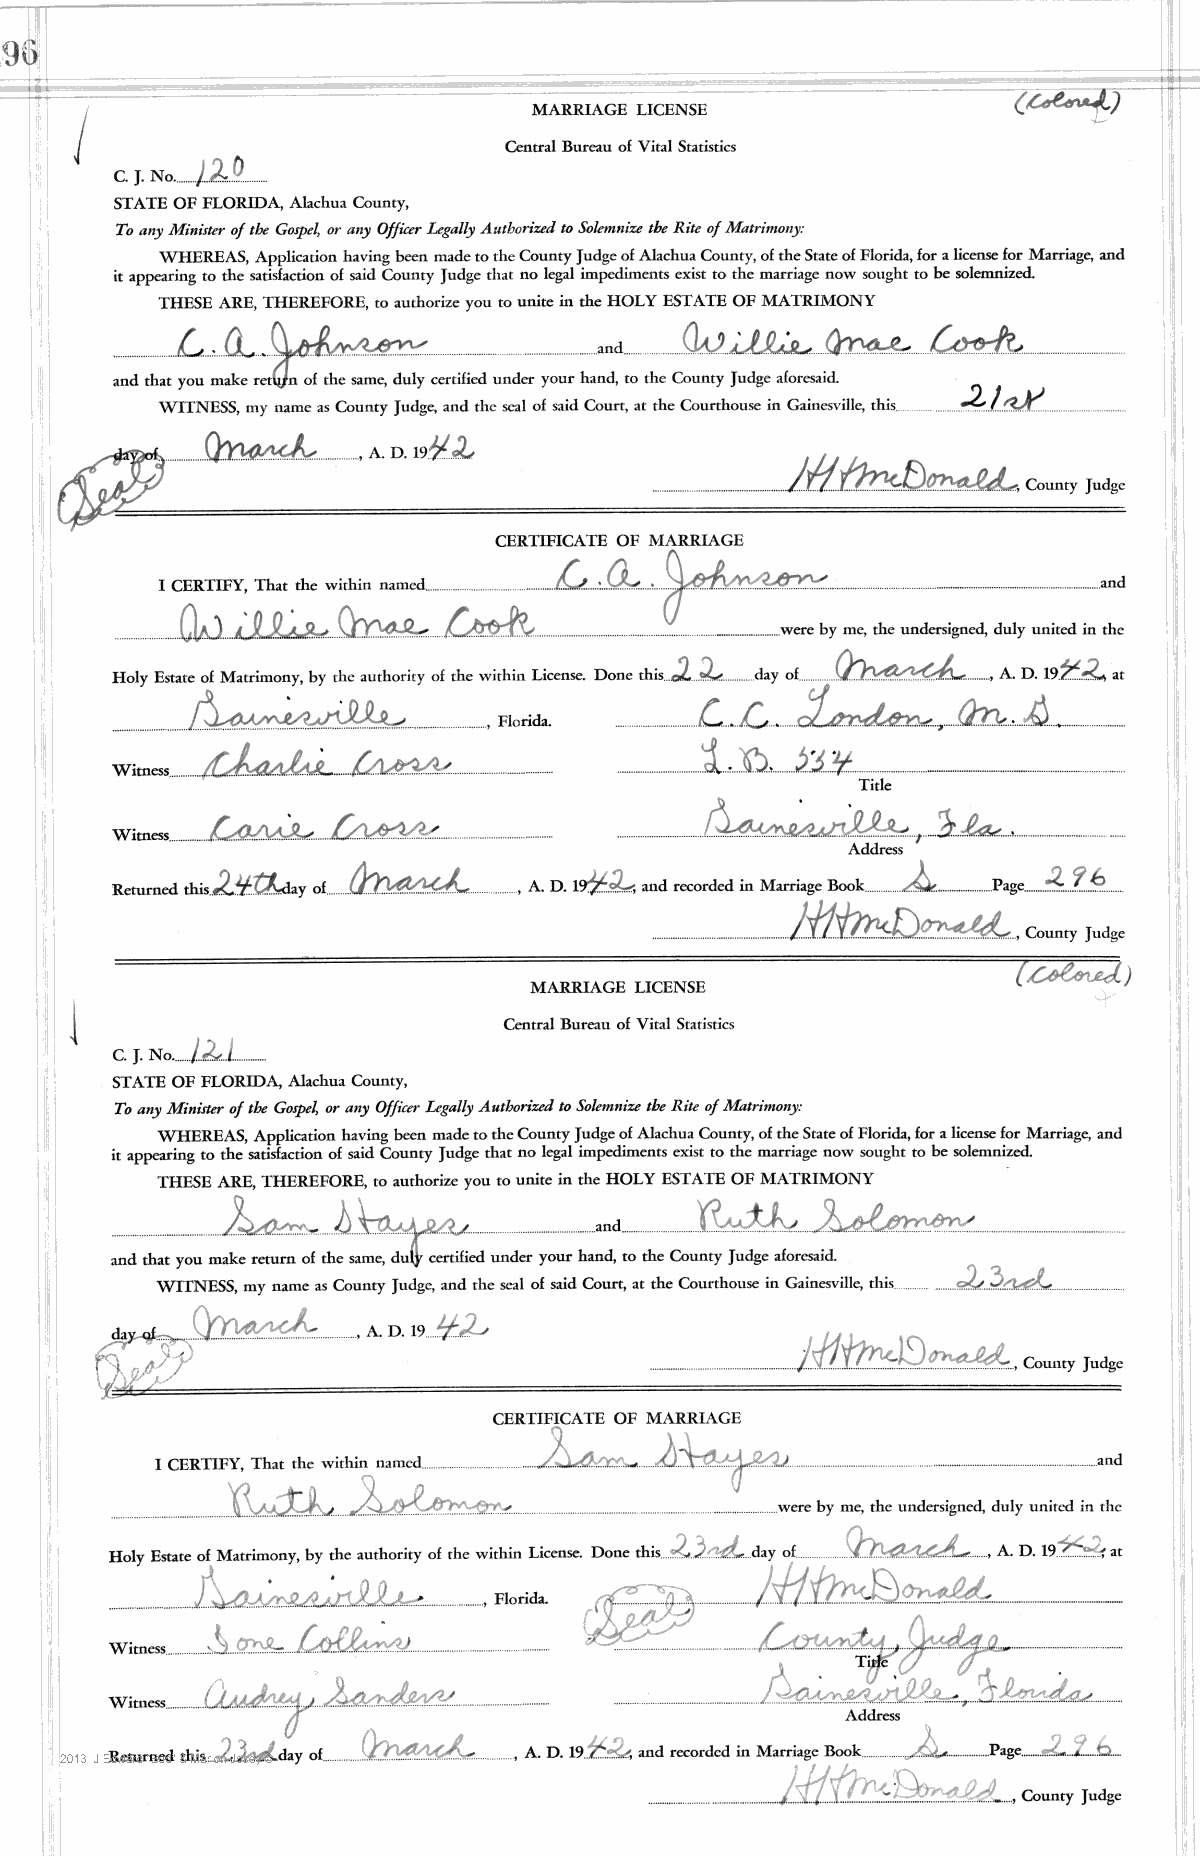 96
(Colored)
MARRIAGE LICENSE
Central Bureau of Vital Statistics
C. J. No. 120
STATE OF FLORIDA, Alachua County,
To any Minister of the Gospel, or any Officer Legally Authorized to Solemnize the Rite of Matrimony:
WHEREAS, Application having been made to the County Judge of Alachua County, of the State of Florida, for a license for Marriage, and
it appearing to the satisfaction of said County Judge that no legal impediments exist to the marriage now sought to be solemnized.
THESE ARE, THEREFORE, to authorize you to unite in the HOLY ESTATE OF MATRIMONY
C. A. Johnson and Willie Mae Cook
and that you make return of the same, duly certified under your hand, to the County Judge aforesaid.
WITNESS, my name as County Judge, and the seal of said Court, at the Courthouse in Gainesville, this 21st
day of March, A. D. 1942
(Seal) HHMcDonald, County Judge
CERTIFICATE OF MARRIAGE
I CERTIFY, That the within named C. A. Johnson and
Willie Mae Cook were by me, the undersigned, duly united in the
Holy Estate of Matrimony, by the authority of the within License. Done this 22 day of March, A. D. 1942, at
Gainesville, Florida. C. C. London, M. G.
Witness Charlie Cross L. B. 334
Title
Witness Carie Cross Gainesville, Fla.
Address
Returned this 24th day of March, A. D. 1942, and recorded in Marriage Book S Page 296
HHMcDonald, County Judge
(Colored)
MARRIAGE LICENSE
Central Bureau of Vital Statistics
C. J. No. 121
STATE OF FLORIDA, Alachua County,
To any Minister of the Gospel, or any Officer Legally Authorized to Solemnize the Rite of Matrimony:
WHEREAS, Application having been made to the County Judge of Alachua County, of the State of Florida, for a license for Marriage, and
it appearing to the satisfaction of said County Judge that no legal impediments exist to the marriage now sought to be solemnized.
THESE ARE, THEREFORE, to authorize you to unite in the HOLY ESTATE OF MATRIMONY
Sam Hayes and Ruth Solomon
and that you make return of the same, duly certified under your hand, to the County Judge aforesaid.
WITNESS, my name as County Judge, and the seal of said Court, at the Courthouse in Gainesville, this 23rd
day of March, A. D. 1942
(Seal) HHMcDonald, County Judge
CERTIFICATE OF MARRIAGE
I CERTIFY, That the within named Sam Hayes and
Ruth Solomon were by me, the undersigned, duly united in the
Holy Estate of Matrimony, by the authority of the within License. Done this 23rd day of March, A. D. 1942, at
Gainesville, Florida. (Seal) HHMcDonald
Witness Ione Collins County Judge
Title
Witness Audrey Sanders Gainesville, Florida
Address
2013 J Returned this 23rd day of March, A. D. 1942, and recorded in Marriage Book S Page 296
HHMcDonald, County Judge